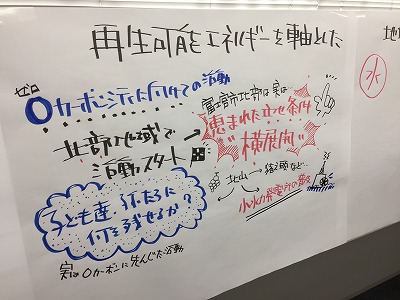 再生可能エネルギーを軸とした
ゼロ
0カーボンシティに向けての活動
北部地域で
活動スタート
子ども達、孫たちに
何を残せるか?
実は0カーボンに先んじた活動
富士宮市北部は実は…
恵まれた立地条件
"横展開"
北山
など…
小水力発電所の普及
地
水